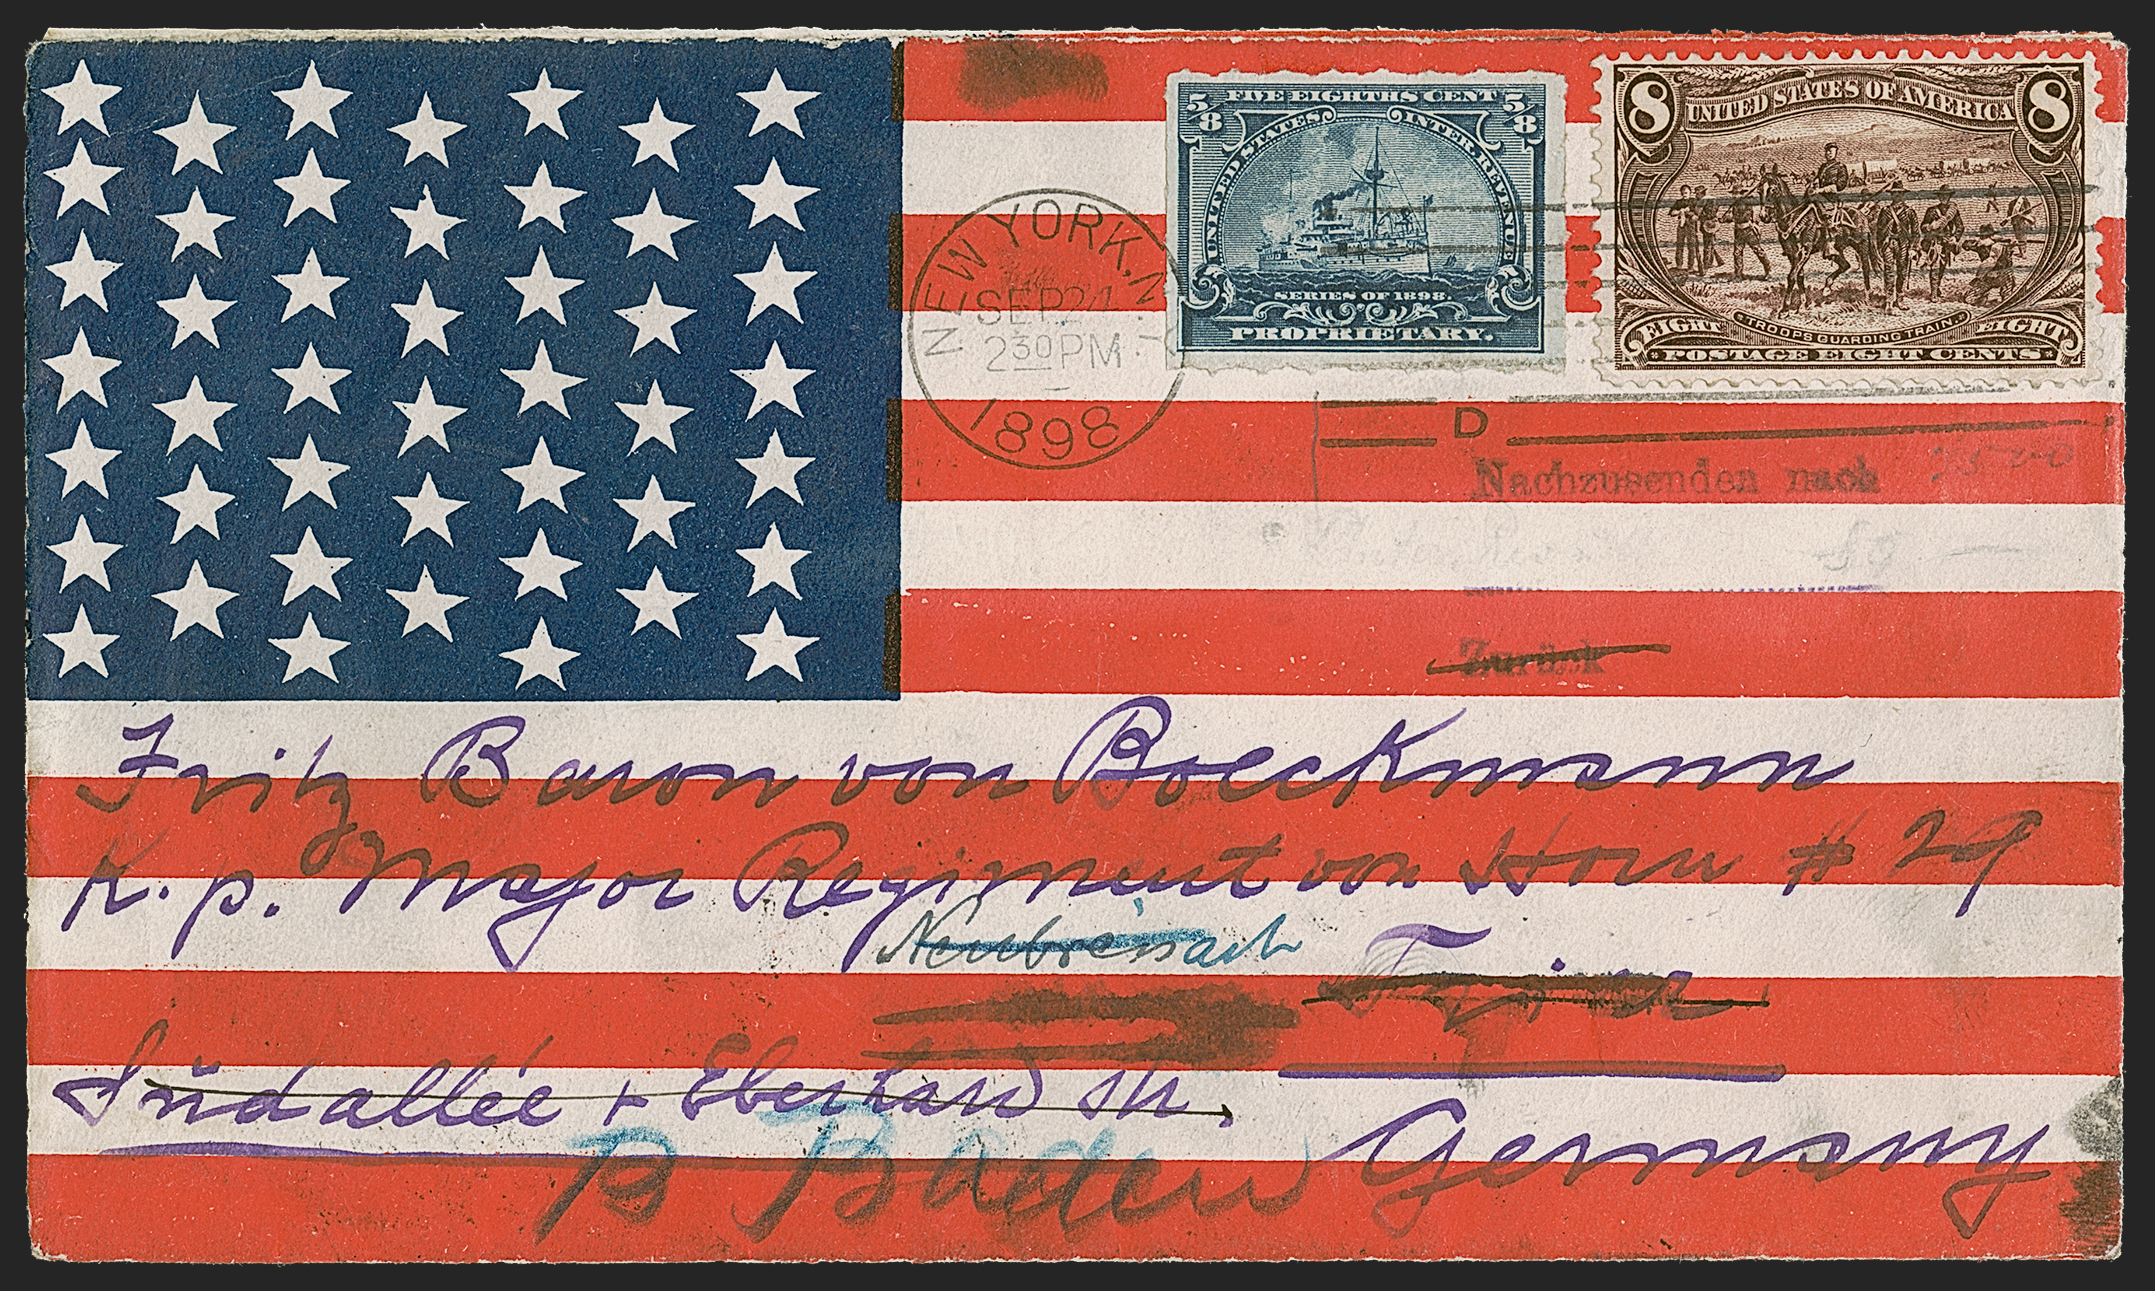 5/8 FIVE EIGHTHS CENT 5/8
UNITED STATES INTER. REVENUE
SERIES OF 1898.
PROPRIETARY.
8 UNITED STATES OF AMERICA 8
TROOPS GUARDING TRAIN.
EIGHT EIGHT
POSTAGE EIGHT CENTS
NEW YORK, N.Y.
SEP 24
2 30 PM
1898
D
Nachzusenden nach
Zurück
Fritz Baron von Boeckmann
K. p. Major Regiment von Horn # 29
Neubreisach
Trier
Südallée + Eberhard str.
B Baden
Germany